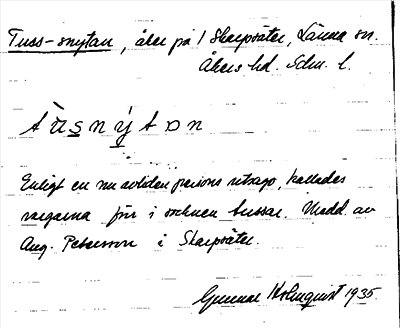 Tuss-snytan, åker på 1 Skarpsäter, Länna sn.
Åkers hd. Sdm. l.
tùsnýtɒn
Enligt en nu avliden persons utsago, kallades
vargarna förr i socknen tussar. Medd. av
Aug. Petersson i Skarpsäter.
Gunnar Holmquist 1935